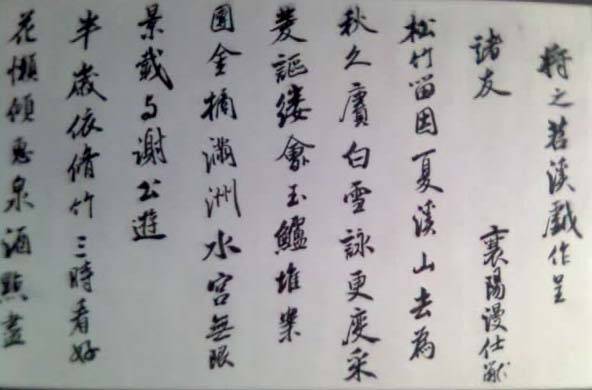 將之苕溪戲作呈
諸友
襄陽漫仕黻
松竹留因夏溪山去為
秋久賡白雪詠更度采
菱謳縷會玉鱸堆案
團金橘滿洲水宮無限
景載与謝公遊
半歲依脩竹三時看好
花懶傾惠泉酒點盡